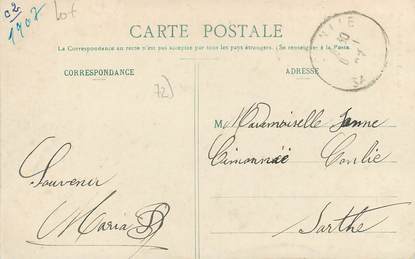 C2
1908
Lot
CARTE POSTALE
La Correspondance au recto n'est pas acceptée par tous les pays étrangers. (Se renseigner à la Poste.)
CORRESPONDANCE
ADRESSE
72)
M Mademoiselle Jenne
Conlie
Souvenir
Maria
Sarthe